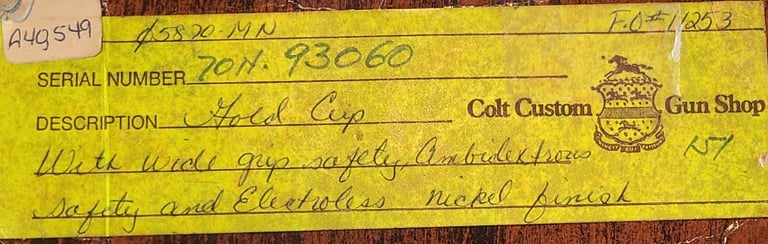 A49549
05870-MN F.O# 11253
SERIAL NUMBER 70N. 93060
DESCRIPTION Gold Cup
Colt Custom Gun Shop
With wide grip safety, Ambidextrous
157
safety and Electroless nickel finish